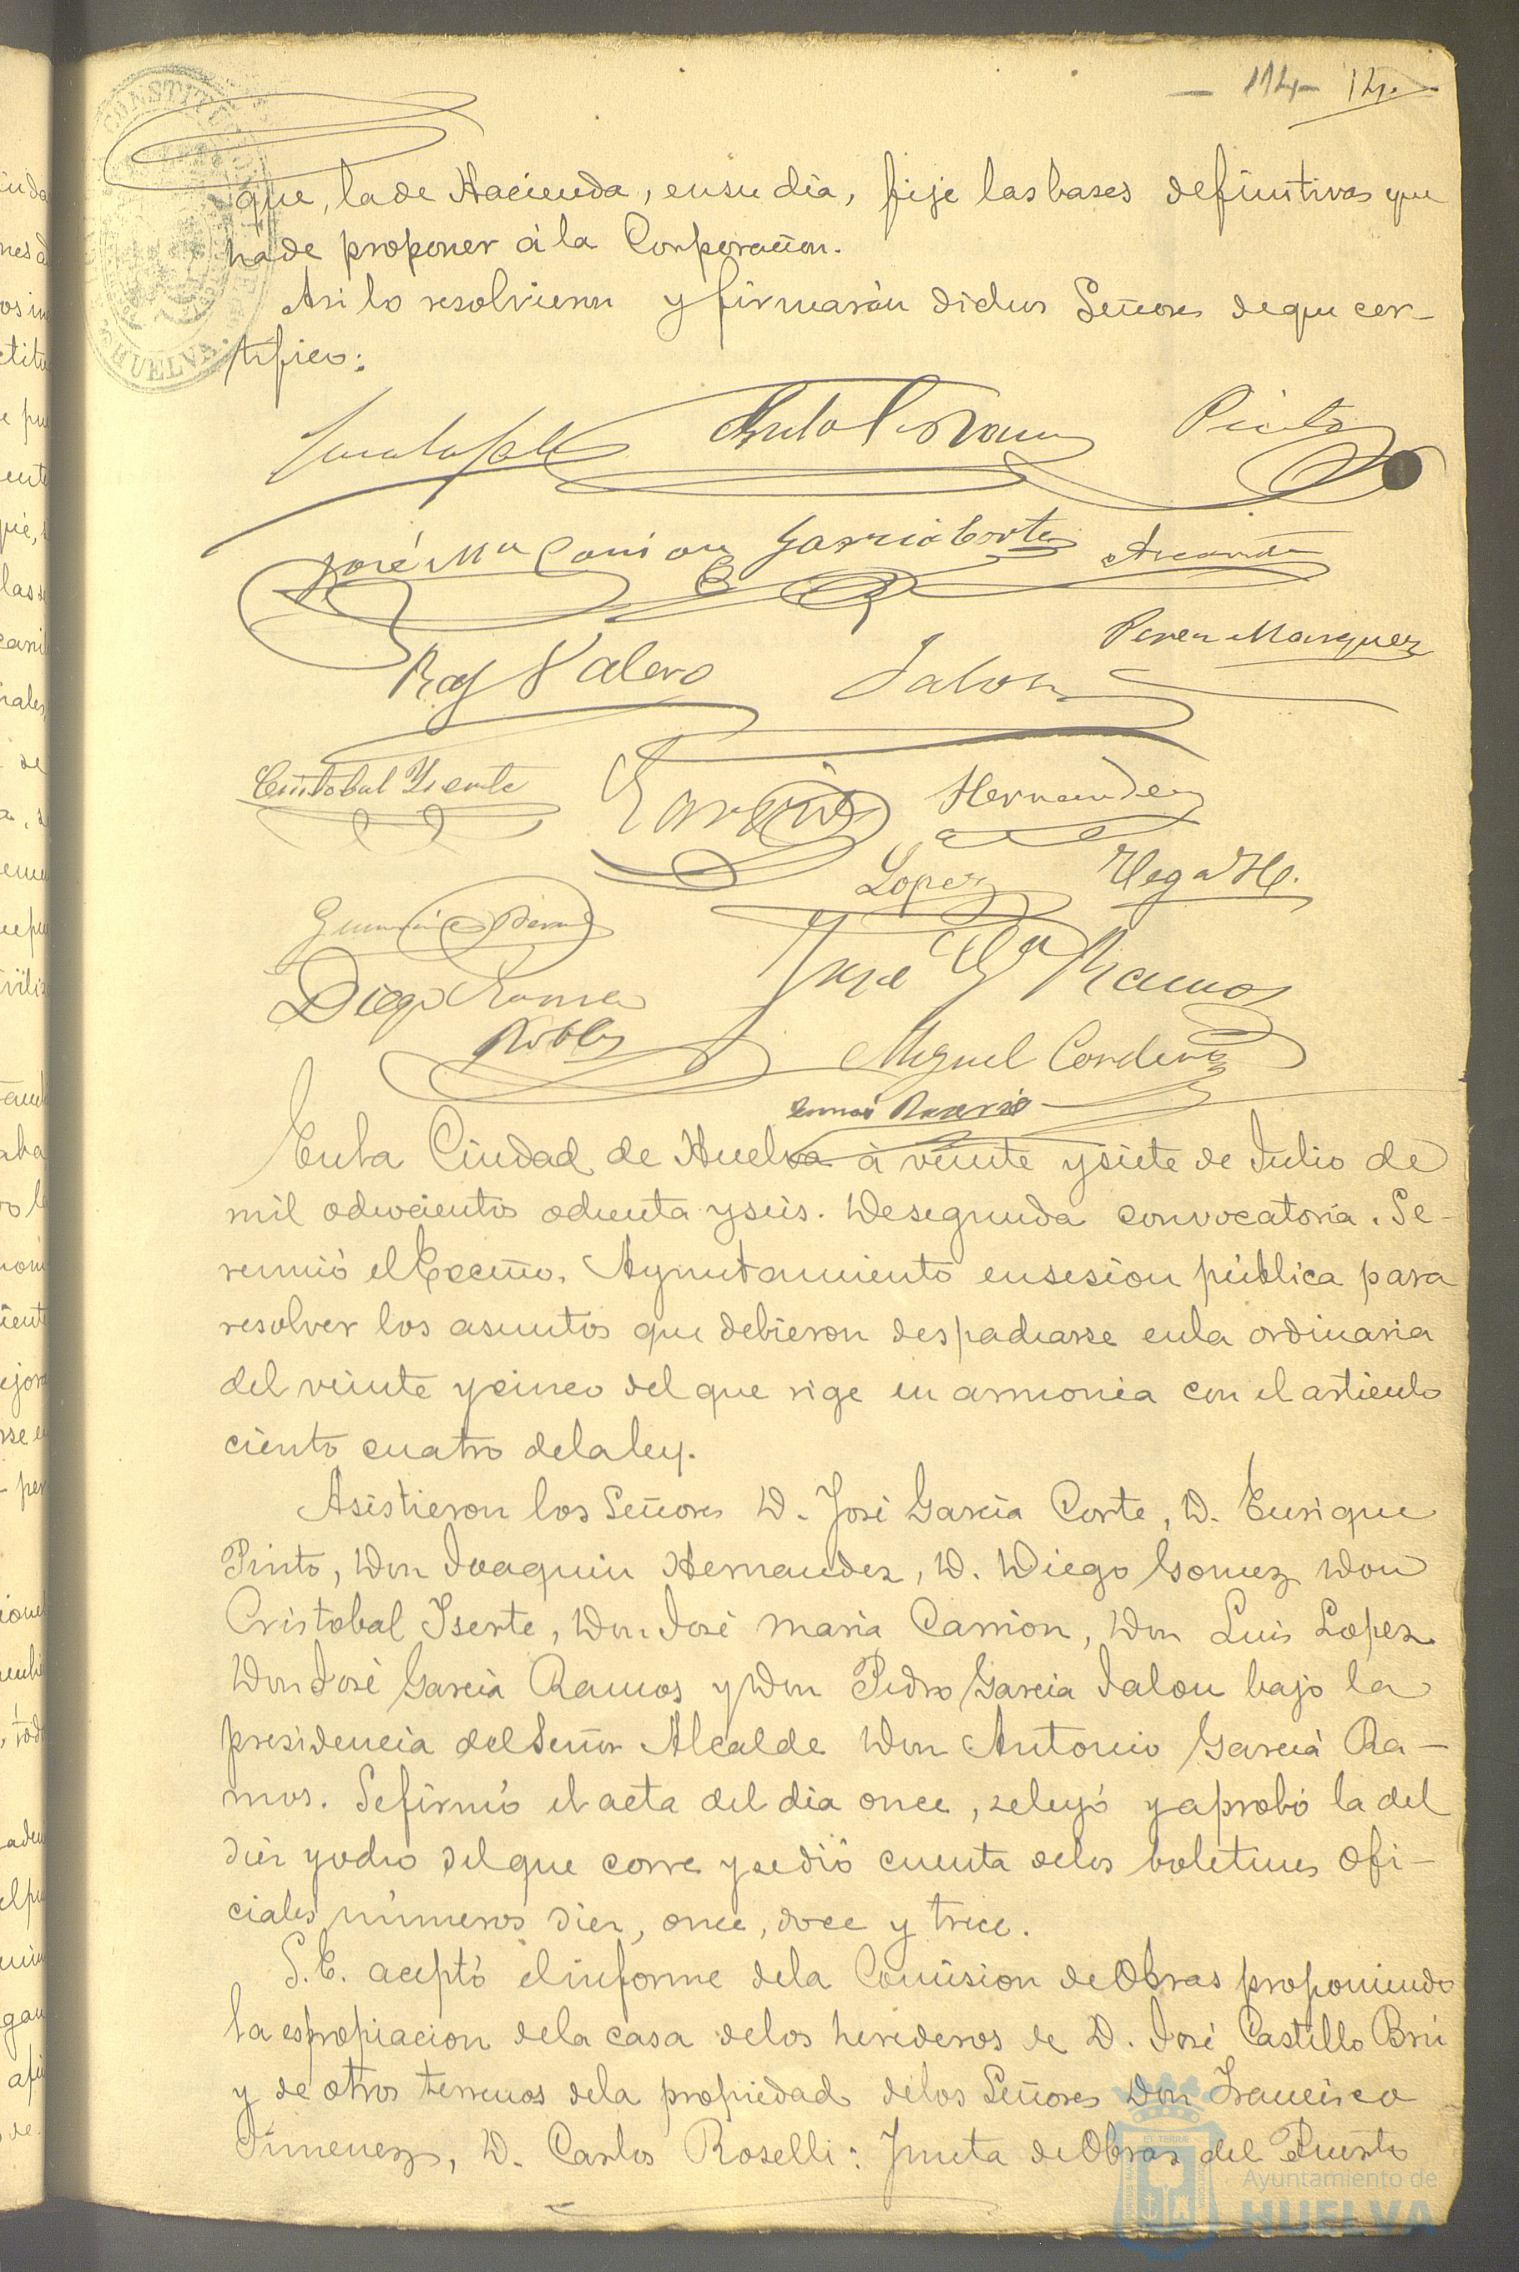 - 114- 14.
que, la de Hacienda, en su dia, fije las bases definitivas que
ha de proponer á la Corporacion.
Asi lo resolvieron y firmarán dichos Señores de que cer-
tifico:
Pinto
José Mª Carrion Garcia Corte
Raf Valero Jalon Perez Marquez
Cristobal Yserte Garcia Hernandez
Lopez Vega H.
José Gª Ramos
Diego Gomez
Robles Miguel Cordero
En la Ciudad de Huelva á veinte y siete de Julio de
mil ochocientos ochenta y seis. De segunda convocatoria. Se
reunió el Excmo. Ayuntamiento en sesion pública para
resolver los asuntos que debieron despacharse en la ordinaria
del veinte y cinco del que rige en armonia con el articulo
ciento cuatro de la ley.
Asistieron los Señores D. José Garcia Corte, D. Enrique
Pinto, Don Joaquin Hernandez, D. Diego Gomez Don
Cristobal Yserte, Don José Maria Carrion, Don Luis Lopez
Don José Garcia Ramos y Don Pedro Garcia Jalon bajo la
presidencia del Señor Alcalde Don Antonio Garcia Ra-
mos. Se firmó el acta del dia once, se leyó y aprobó la del
diez y ocho del que corre y se dió cuenta de los boletines ofi-
ciales números diez, once, doce y trece.
S. E. aceptó el informe de la Comision de Obras proponiendo
la espropiacion de la casa de los herederos de D. José Castillo Brú
y de otros terrenos de la propiedad de los Señores Don Francisco
Jimenez, D. Carlos Roselli: Junta de Obras del Puerto
Ayuntamiento de
HUELVA